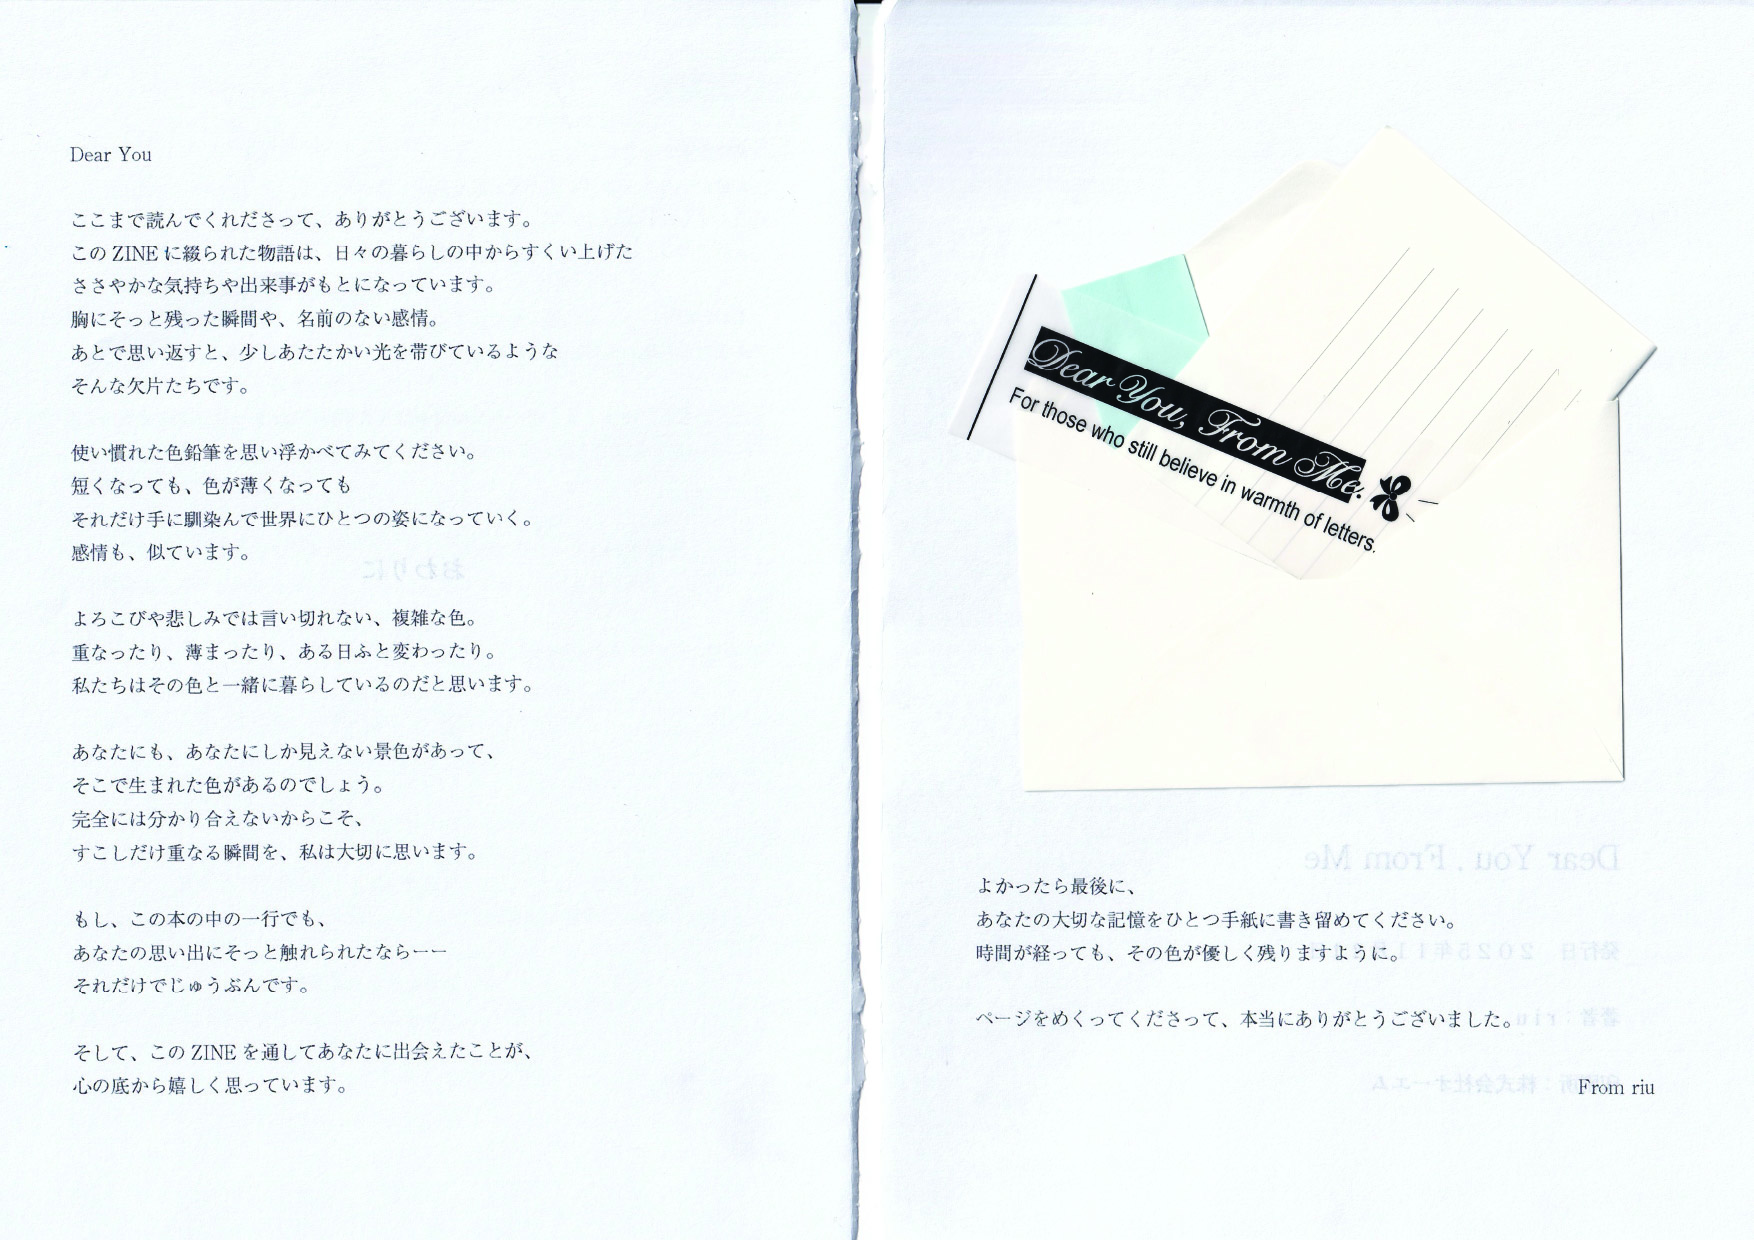 Dear You
ここまで読んでくれださって、ありがとうございます。
この ZINE に綴られた物語は、日々の暮らしの中からすくい上げた
ささやかな気持ちや出来事がもとになっています。
胸にそっと残った瞬間や、名前のない感情。
あとで思い返すと、少しあたたかい光を帯びているような
そんな欠片たちです。
使い慣れた色鉛筆を思い浮かべてみてください。
短くなっても、色が薄くなっても
それだけ手に馴染んで世界にひとつの姿になっていく。
感情も、似ています。
おわりに
よろこびや悲しみでは言い切れない、複雑な色。
重なったり、薄まったり、ある日ふと変わったり。
私たちはその色と一緒に暮らしているのだと思います。
あなたにも、あなたにしか見えない景色があって、
そこで生まれた色があるのでしょう。
完全には分かり合えないからこそ、
すこしだけ重なる瞬間を、私は大切に思います。
もし、この本の中の一行でも、
あなたの思い出にそっと触れられたならーー
それだけでじゅうぶんです。
そして、この ZINE を通してあなたに出会えたことが、
心の底から嬉しく思っています。
Dear You, From Me.
For those who still believe in warmth of letters.
Dear You , From Me
よかったら最後に、
あなたの大切な記憶をひとつ手紙に書き留めてください。
発行日 2025年11
時間が経っても、その色が優しく残りますように。
著者：riu
ページをめくってくださって、本当にありがとうございました。
株式会社オーエム
From riu